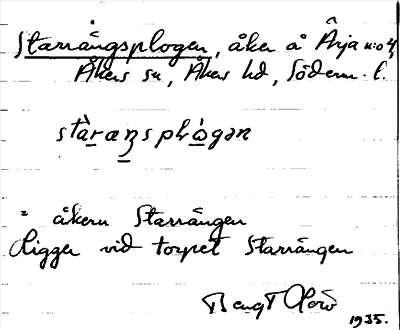 Starrängsplogen, åker å Ärja n:o 4,
Åkers sn, Åkers hd, Söderm. l.
stàræŋsplὼgən
= åkern Starrängen
Ligger vid torpet Starrängen
Bengt
1935.